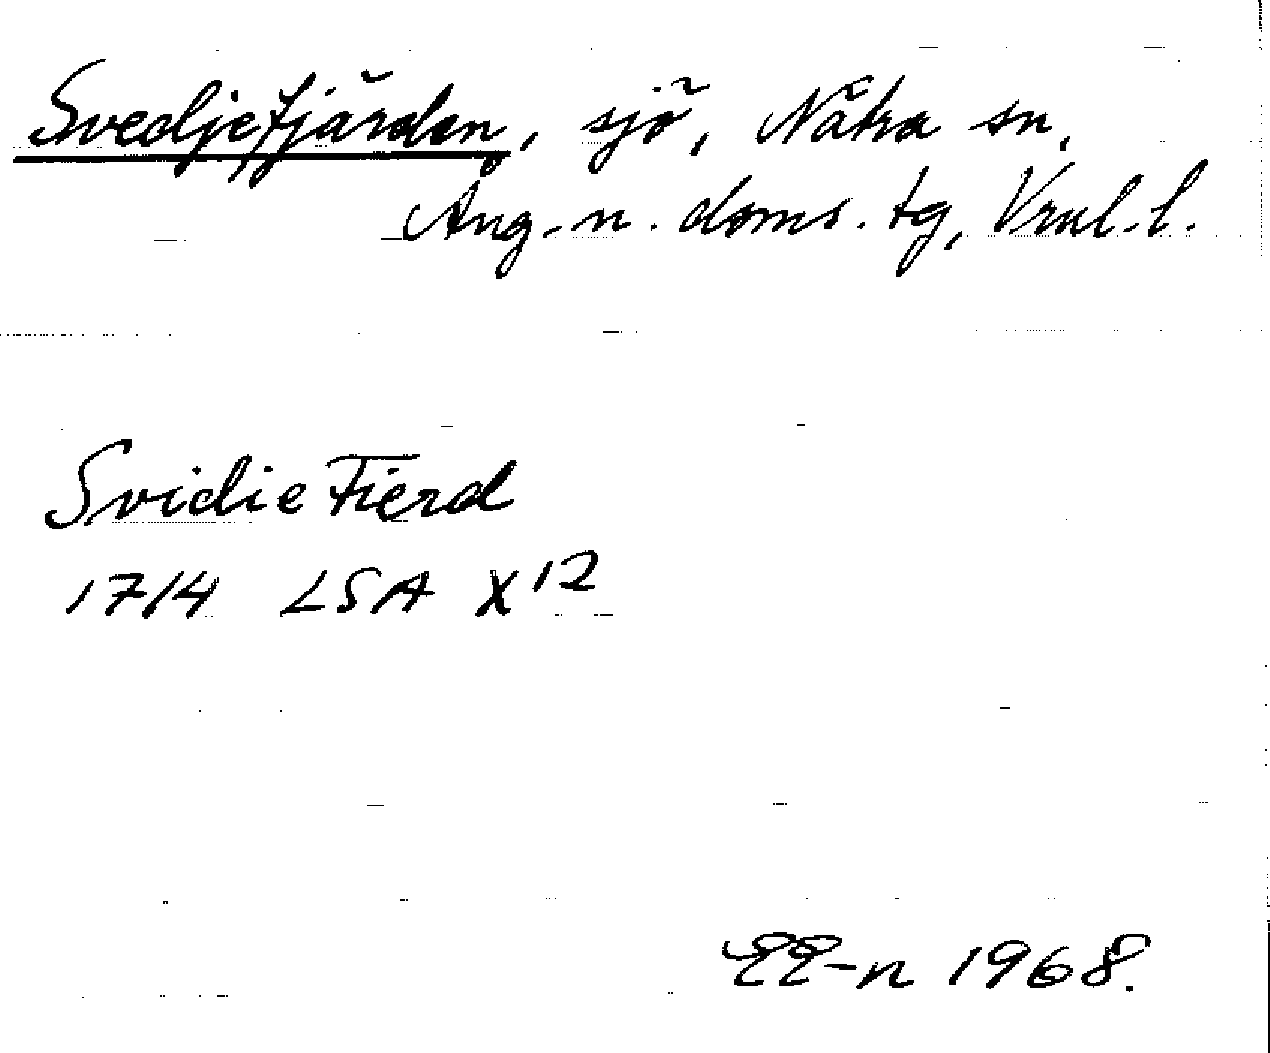 Svedjefjärden, sjö, Nätra sn,
Ång.-n. doms. tg, Vrnl. l.
Svidie Fierd
1714 LSA X 12
EE-n 1968.